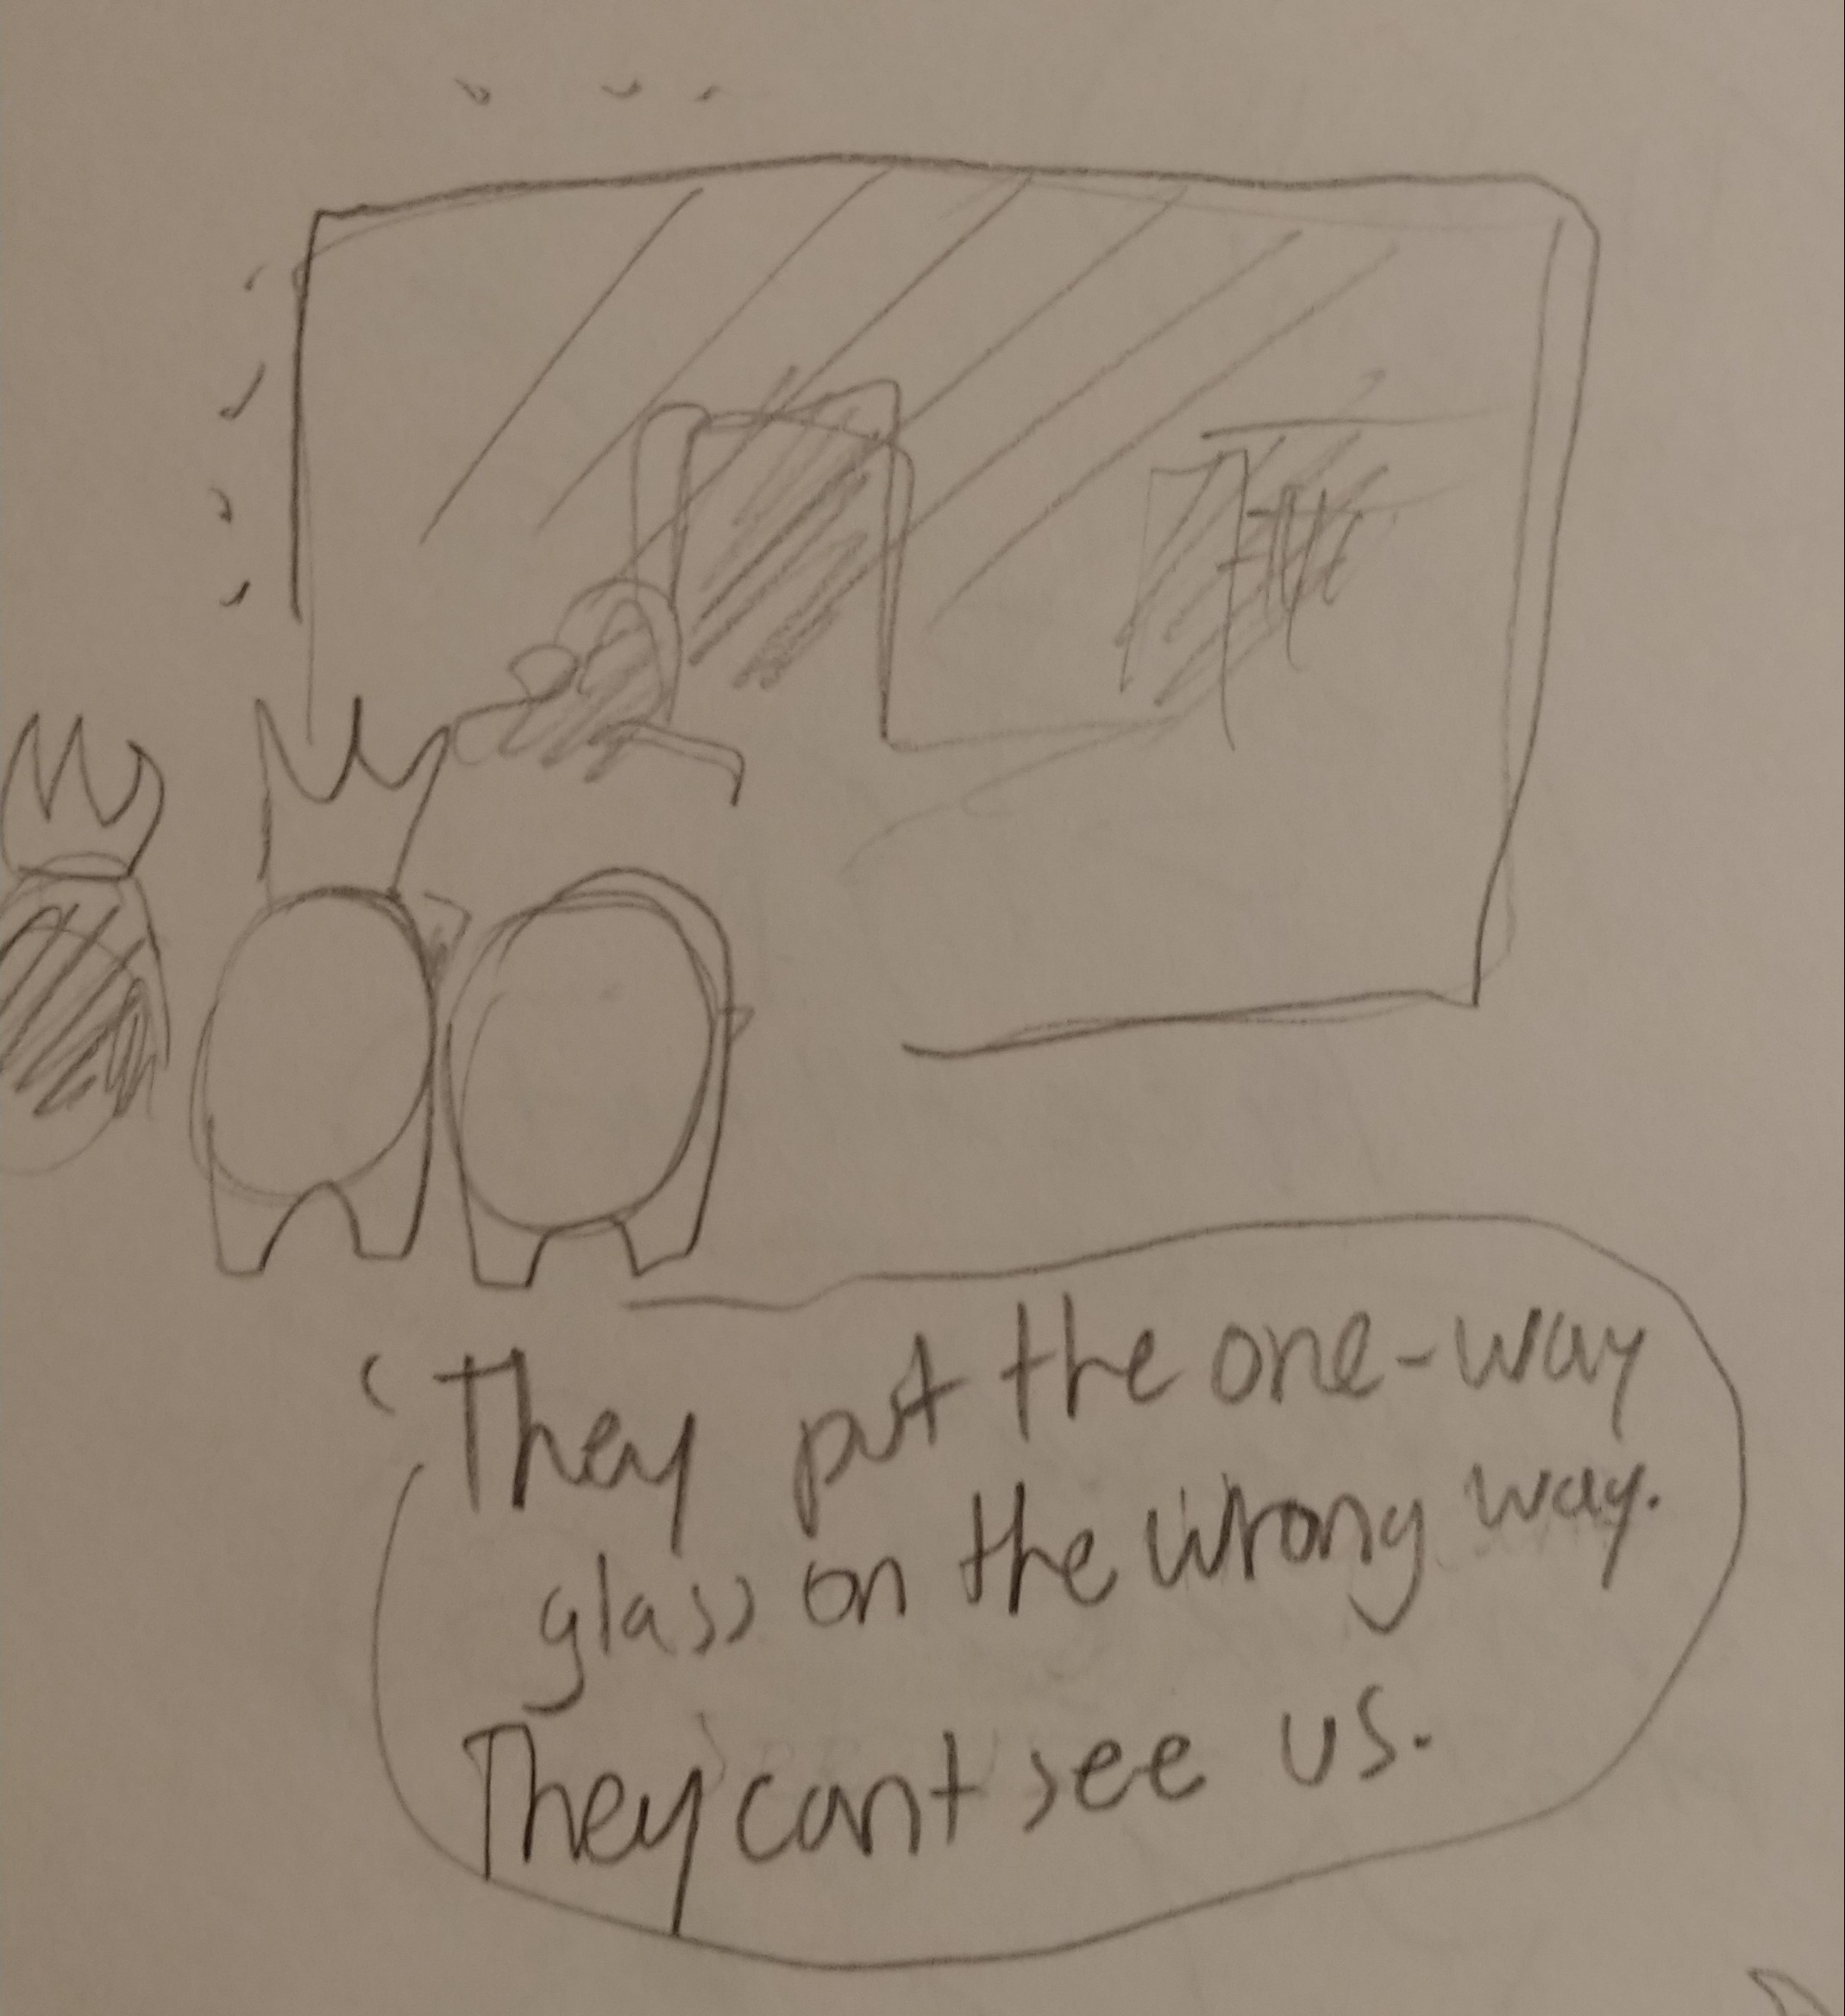 They put the one-way
glass on the wrong way.
They cant see us.